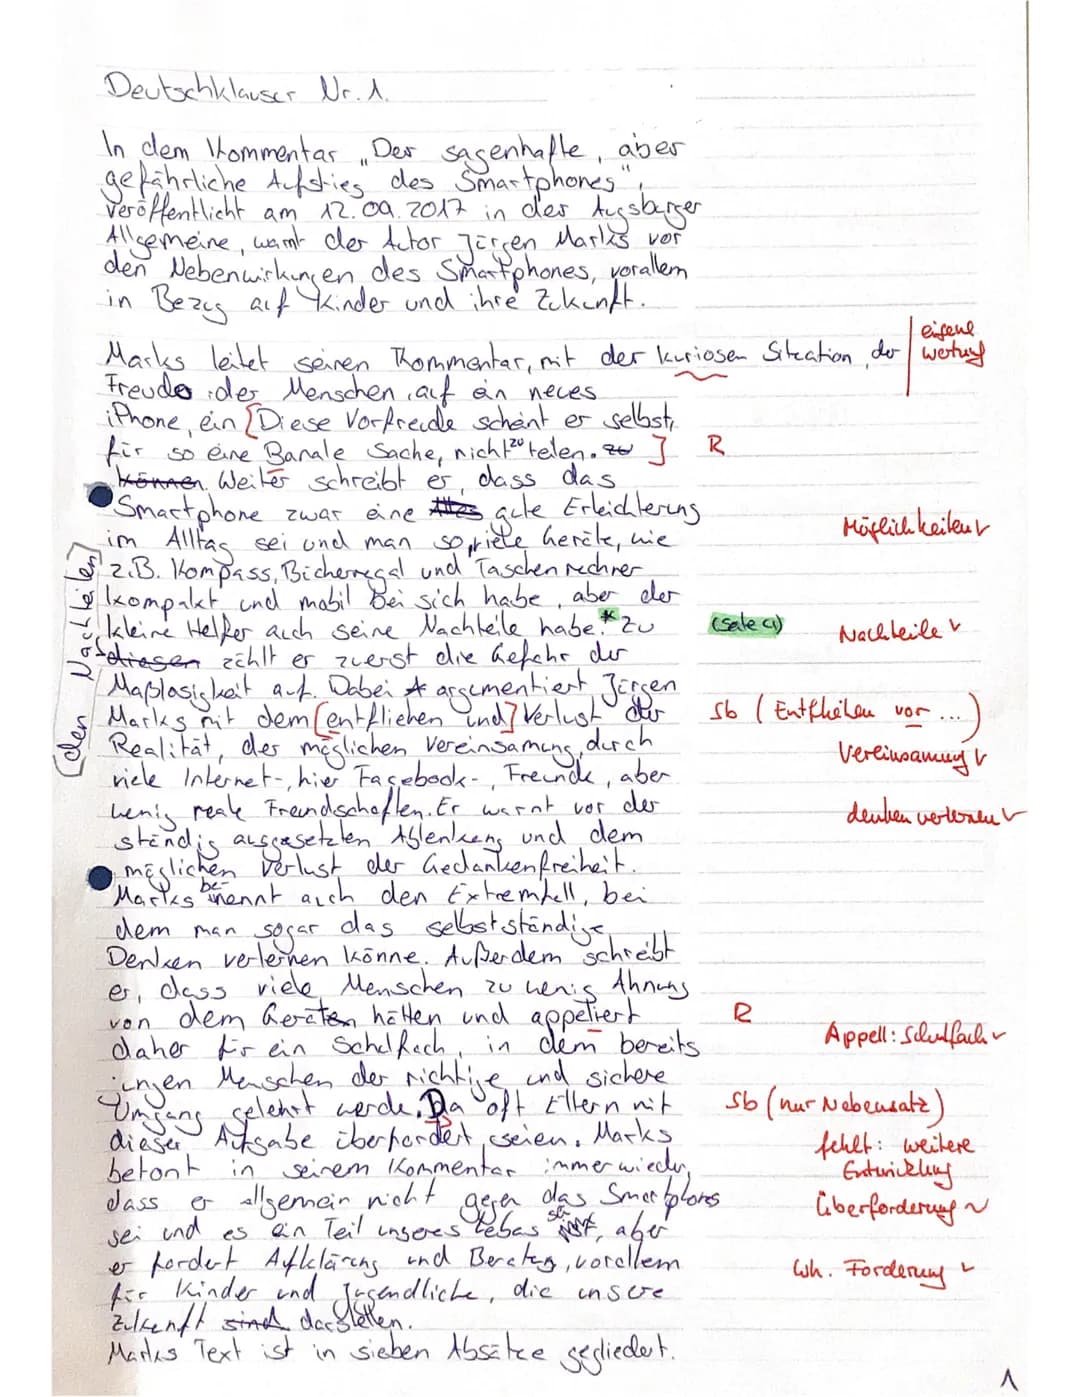 Deutschklauser Nr. 1.
In dem Kommentar „Der sagenhafte, aber
gefährliche Aufstieg des Smartphones",
veröffentlicht am 12.09.2017 in der Augsburger
Allgemeine, warnt der Autor Jürgen Marks vor
den Nebenwirkungen des Smartphones, vorallem
in Bezug auf Kinder und ihre Zukunft.
Marks leitet seinen Kommentar, mit der kuriosen Situation, der
eigene
wertung
Freude der Menschen auf ein neues
iPhone, ein [Diese Vorfreude scheint er selbst,
für so eine Banale Sache, nicht zu teilen. zu ] R
können. Weiter schreibt er, dass das
Smartphone zwar eine gute Erleichterung
Möglichkeiten √
im Alltag sei und man so viele Geräte, wie
z.B. Kompass, Bücherregal und Taschenrechner
kompakt und mobil bei sich habe, aber der
kleine Helfer auch seine Nachteile habe.* Zu
(Seite 4)
Nachteile √
(den Nachteilen)
diesen zählt er zuerst die Gefahr der
Maßlosigkeit auf. Dabei argumentiert Jürgen
Marks mit dem [entfliehen und] Verlust der
Sb (Entfliehen vor ...)
Realität, der möglichen Vereinsamung, durch
Vereinsamung √
viele Internet-, hier Facebook-, Freunde, aber
wenig reale Freundschaften. Er warnt vor der
denken verlernen √
ständig ausgesetzten Ablenkung und dem
möglichen Verlust der Gedankenfreiheit.
Marks benennt auch den Extremfall, bei
dem man sogar das selbstständige
Denken verlernen könne. Außerdem schreibt
er, dass viele Menschen zu wenig Ahnung
von dem Geräten hätten und appeliert R
Appell: Schulfach √
daher für ein Schulfach, in dem bereits
jungen Menschen der richtige und sichere
Umgang gelehrt werde. Da oft Eltern mit
Sb (nur Nebensatz)
dieser Aufgabe überfordert seien. Marks
fehlt: weitere
Entwicklung
betont in seinem Kommentar immer wieder,
dass er allgemein nicht gegen das Smartphones
Überforderung ~
sei und es ein Teil unseres Lebens sei, aber
er fordert Aufklärung und Beratung, vorallem
Wh. Forderung √
für Kinder und Jugendliche, die unsere
Zukunft sind darstellen.
Marks Text ist in sieben Absätze gegliedert.
1